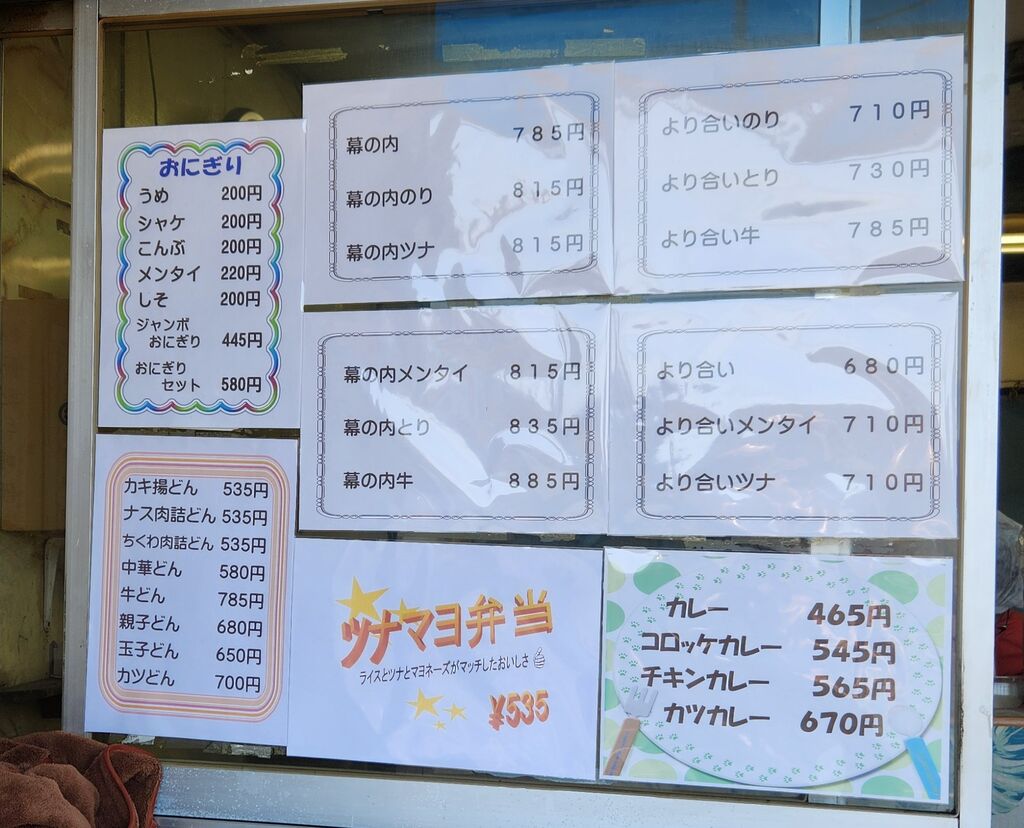 おにぎり
うめ 200円
シャケ 200円
こんぶ 200円
メンタイ 220円
しそ 200円
ジャンボ
おにぎり 445円
おにぎり
セット 580円
幕の内 785円
幕の内のり 815円
幕の内ツナ 815円
より合いのり 710円
より合いとり 730円
より合い牛 785円
幕の内メンタイ 815円
幕の内とり 835円
幕の内牛 885円
より合い 680円
より合いメンタイ 710円
より合いツナ 710円
カキ揚どん 535円
ナス肉詰どん 535円
ちくわ肉詰どん 535円
中華どん 580円
牛どん 785円
親子どん 680円
玉子どん 650円
カツどん 700円
ツナマヨ弁当
ライスとツナとマヨネーズがマッチしたおいしさ
¥535
カレー 465円
コロッケカレー 545円
チキンカレー 565円
カツカレー 670円